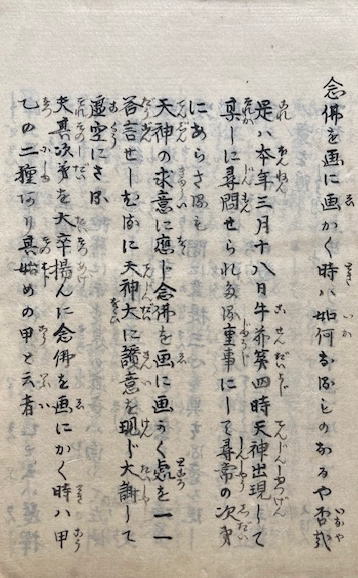 念佛を画にかく時ハ如何なるものなるや否哉
是ハ本年三月十八日午前第四時天神出現して
某しに尋問せられたる重事にして尋常の次第
にあらさるも
天神の求意に應じ念佛を画に画く處を一一
答言せしに天神大に讃意を現じ大謝して
虚空にさる
夫其次第を大卒撮んに念佛を画にかく時ハ甲
乙の二種あり其始めの甲と云者